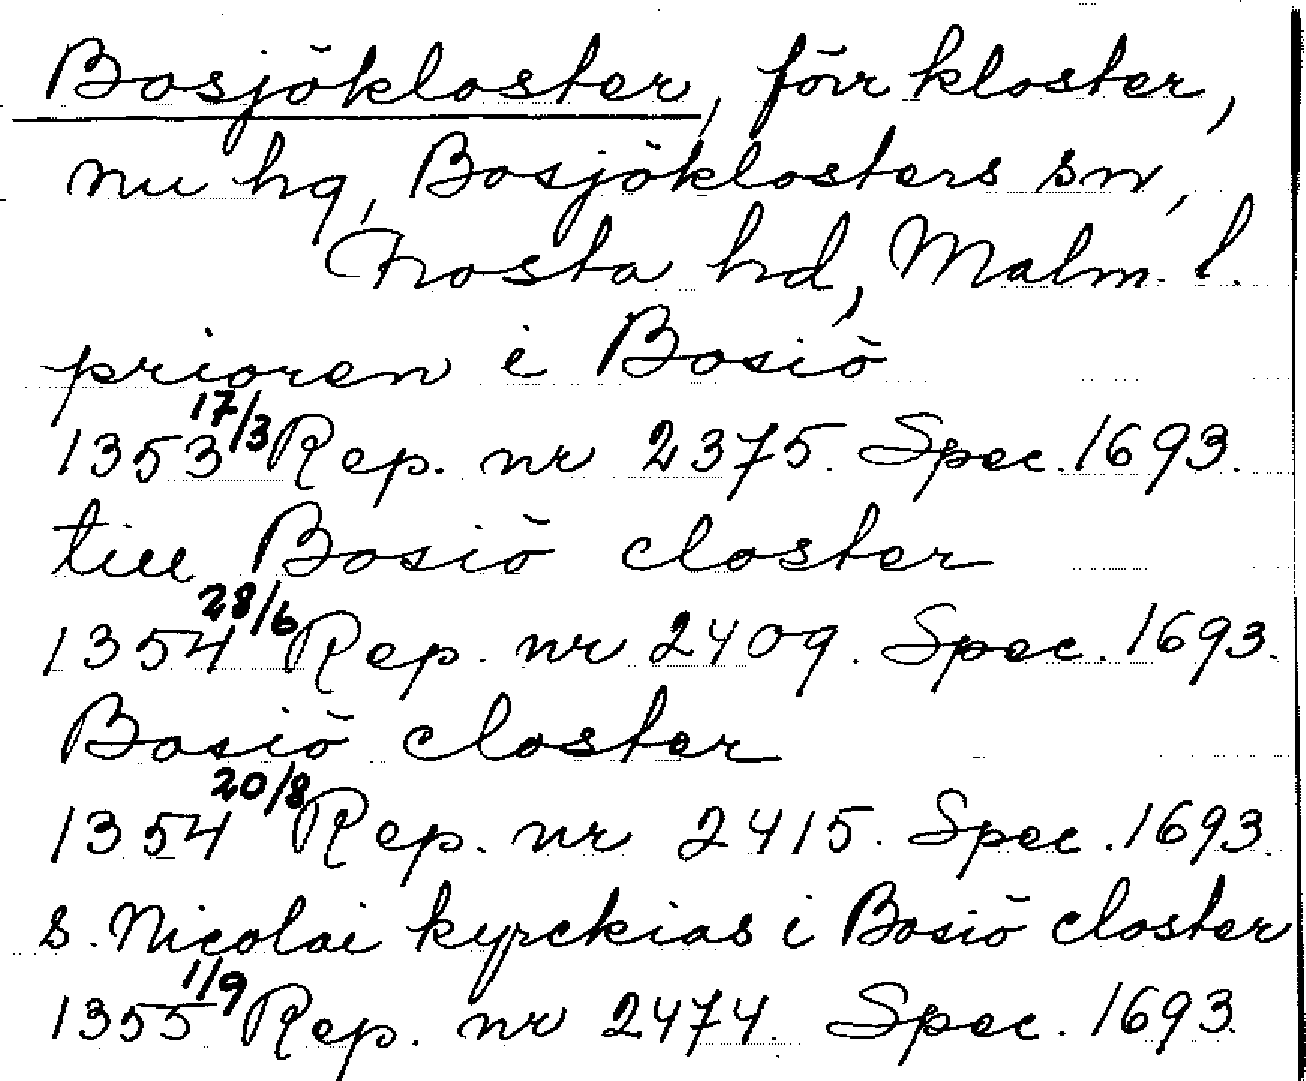 Bosjökloster, förr kloster,
nu hg, Bosjöklosters sn,
Frosta hd, Malm. l.
prioren i Bosiö
1353 17/3 Rep. nr 2375. Spec. 1693.
till Bosiö closter
1354 28/6 Rep. nr 2409. Spec. 1693.
Bosiö closter
1354 20/8 Rep. nr 2415. Spec. 1693.
s. Nicolai kyrckias i Bosiö closter
1355 1/9 Rep. nr 2474. Spec. 1693.